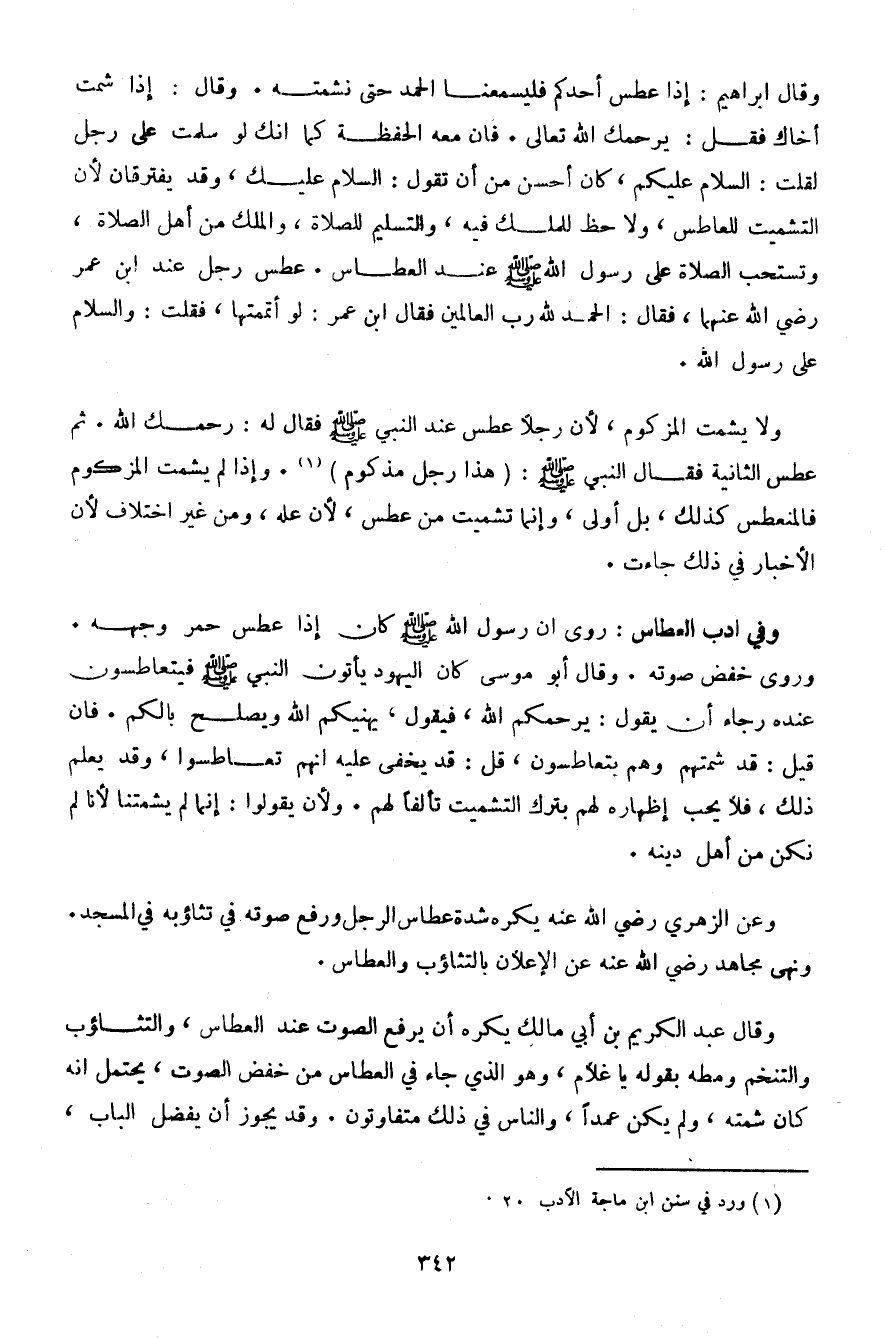 وقال ابراهيم : إذا عطس أحدكم فليسمعنا الحمد حتى نشمته . وقال : إذا شمت
أخاك فقل : يرحمك الله تعالى . فان معه الحفظة كما انك لو سلمت على رجل
لقلت : السلام عليكم ، كان أحسن من أن تقول : السلام عليك ، وقد يفترقان لأن
التشميت للعاطس ، ولا حظ للملك فيه ، والتسليم للصلاة ، والملك من أهل الصلاة ،
وتستحب الصلاة على رسول الله ﷺ عند العطاس . عطس رجل عند ابن عمر
رضي الله عنهما ، فقال : الحمد لله رب العالمين فقال ابن عمر : لو أتممتها ، فقلت : والسلام
على رسول الله .
ولا يشمت المزكوم ، لأن رجلاً عطس عند النبي ﷺ فقال له : رحمك الله . ثم
عطس الثانية فقال النبي ﷺ : ( هذا رجل مذكوم ) (١) . وإذا لم يشمت المزكوم
فالمنعطس كذلك ، بل أولى ، وإنما تشميت من عطس ، لأن عله ، ومن غير اختلاف لأن
الأخبار في ذلك جاءت .
وفي ادب العطاس : روى ان رسول الله ﷺ كان إذا عطس حمر وجهه .
وروى خفض صوته . وقال أبو موسى كان اليهود يأتون النبي ﷺ فيتعاطسون
عنده رجاء أن يقول : يرحمكم الله ، فيقول ، يهنيكم الله ويصلح بالكم . فان
قيل : قد شمتهم وهم بتعاطسون ، قل : قد يخفى عليه انهم تعاطسوا ، وقد يعلم
ذلك ، فلا يحب إظهاره لهم بترك التشميت تألفاً لهم . ولأن يقولوا : إنما لم يشمتنا لأنا لم
نكن من أهل دينه .
وعن الزهري رضي الله عنه يكره شدة عطاس الرجل ورفع صوته في تثاؤبه في المسجد .
ونهى مجاهد رضي الله عنه عن الإعلان بالتثاؤب والعطاس .
وقال عبد الكريم بن أبي مالك يكره أن يرفع الصوت عند العطاس ، والتثاؤب
والتنخم ومطه بقوله يا غلام ، وهو الذي جاء في العطاس من خفض الصوت ، يحتمل انه
كان شمته ، ولم يكن عمداً ، والناس في ذلك متفاوتون . وقد يجوز أن يفضل الباب ،
(١) ورد في سنن ابن ماجة الأدب ٢٠ .
٣٤٢